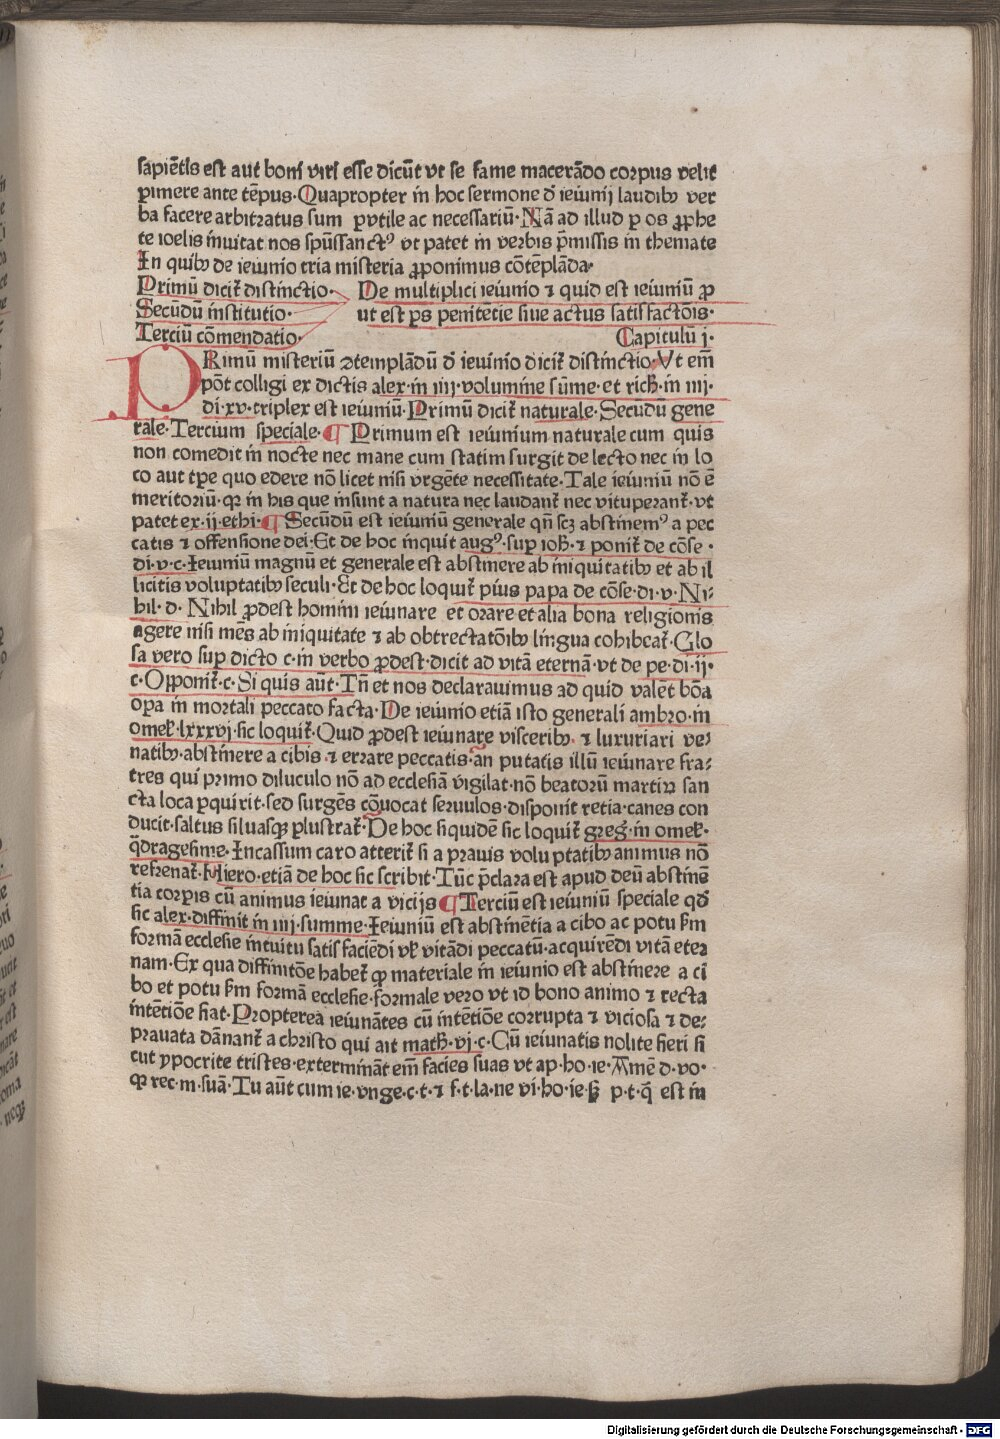 sapiẽtis est aut boni viri esse dicũt vt se fame macerãdo corpus velit
ꝑimere ante tẽpus·Quapropter in hoc sermone đ ieiunij laudibꝰ ver
ba facere arbitratus sum ꝑvtile ac necessariũ·Nã ad illud ꝑ os ꝓphe
te ioelis inuitat nos spũssanctꝰ vt patet in verbis p̃missis in themate
In quibꝰ de ieiunio tria misteria ꝓponimus cõtẽplãda·
Primũ dicit̃ distinctio·
Secũdũ institutio·
Terciũ cõmendatio·
De multiplici ieiunio ⁊ quid est ieiuniũ ꝓ
ut est ꝑs penitẽtie siue actus satisfactõis·
Capitulũ j·
PRimũ misteriũ ↄtemplãdũ đ ieiunio dicit̃ distinctio·Vt em̃
põt colligi ex dictis alex·in iiij·volumine sũme·et rich̃·in iiij·
di·xv·triplex est ieiuniũ·Primũ dicit̃ naturale·Secũdũ gene
rale·Tercium speciale·¶ Primum est ieiunium naturale cum quis
non comedit in nocte nec mane cum statim surgit de lecto nec in lo
co aut tꝑe quo edere nõ licet nisi vrgẽte necessitate·Tale ieiuniũ nõ ẽ
meritoriũ·qꝛ in his que insunt a natura nec laudant̃ nec vituperant̃·vt
patet ex·ij·ethi·¶ Secũdũ est ieiuniũ generale qñ scꝫ abstinemꝰ a pec
catis ⁊ offensione dei:Et de hoc inquit augꝰ·suꝑ ioh̃·⁊ ponit̃ de cõse·
di·v·c·Ieiuniũ magnũ et generale est abstinere ab iniquitatibꝰ et ab il
licitis voluptatibꝰ seculi·Et de hoc loquit̃ pius papa de cõse·di·v·Ni·
hil·đ· Nihil ꝓdest homini ieiunare et orare et alia bona religionis
agere nisi mẽs ab iniquitate ⁊ ab obtrectatõibꝰ lingua cohibeat̃·Glo
sa vero suꝑ dicto c·in verbo ꝓdest·dicit ad vitã eternã·vt de pe·di·ij·
c·Oꝓponit̃·c·Si quis aũt·Tñ et nos declarauimus ad quid valẽt bõa
oꝑa in mortali peccato facta·De ieiunio etiã isto generali ambro·in
omel̃·lxxxvj·sic loquit̃·Quid ꝓdest ieiunare visceribꝰ·⁊ luxuriari ve⸗
natibꝰ·abstinere a cibis·⁊ errare peccatis·an putatis illũ ieiunare fra⸗
tres qui primo diluculo nõ ad ecclesiã vigilat·nõ beatorũ martiꝝ san
cta loca ꝑquirit·sed surgẽs cõuocat seruulos·disponit retia·canes con
ducit·saltus siluasqꝫ ꝑlustrat̃·De hoc siquidẽ sic loquit̃ greg̃·in omel̃·
q̃dragesime·Incassum caro atterit̃ si a prauis voluptatibꝰ animus nõ
refrenat̃·Hiero·etiã de hoc sic scribit·Tũc p̃clara est apud deũ abstinẽ
tia corꝑis cũ animus ieiunat a vicijs ¶ Terciũ est ieiuniũ speciale qđ
sic alex·diffinit in iiij·summe·Ieiuniũ est abstinẽtia a cibo ac potu ẜm
formã ecclesie intuitu satisfaciẽdi vel̃ vitãdi peccatũ·acquirẽdi vitã eter
nam·Ex qua diffinitõe habet̃ ꝙ materiale in ieiunio est abstinere a ci
bo et potu ẜm formã ecclesie·formale vero vt id bono animo ⁊ recta
intẽtiõe fiat·Propterea ieiunãtes cũ intẽtiõe corrupta ⁊ viciosa ⁊ de⸗
prauata dãnant̃ a christo qui ait math̃·vj·c·Cũ ieiunatis nolite fieri si
cut ypocrite tristes·exterminãt em̃ facies suas vt ap·ho·ie·Amẽ đ·vo·
ꝙ rec·m·suã·Tu aũt cum ie·vnge·c·t·⁊ f·t·la·ne vi·ho·ie·ẜꝫ p·t·q̃ est in
Digitalisierung gefördert durch die Deutsche Forschungsgemeinschaft - DFG